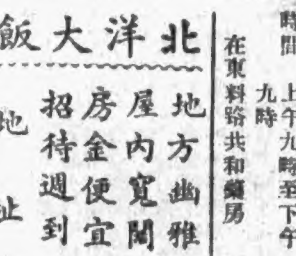 時間 上午九時至下午
九時
在東料路共和藥房
北洋大飯
地方幽雅
屋内寬闊
房金便宜
招待週到
地址